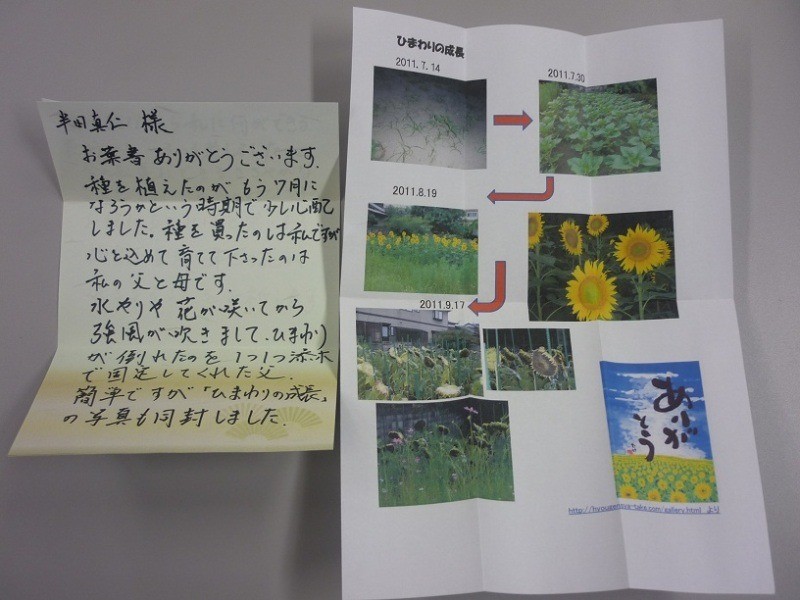 半田真仁 様
お葉書ありがとうございます.
種を植えたのが もう7月に
なろうかという時期で少し心配
しました. 種を買ったのは私ですが
心を込めて 育てて下さったのは
私の父と母です.
水やりや 花が咲いてから
強風が吹きまして、ひまわり
が倒れたのを 1つ1つ添木
で固定してくれた父.
簡単ですが「ひまわりの成長」
の写真も同封しました.
ひまわりの成長
2011.7.14
2011.7.30
2011.8.19
2011.9.17
ありがとう
より